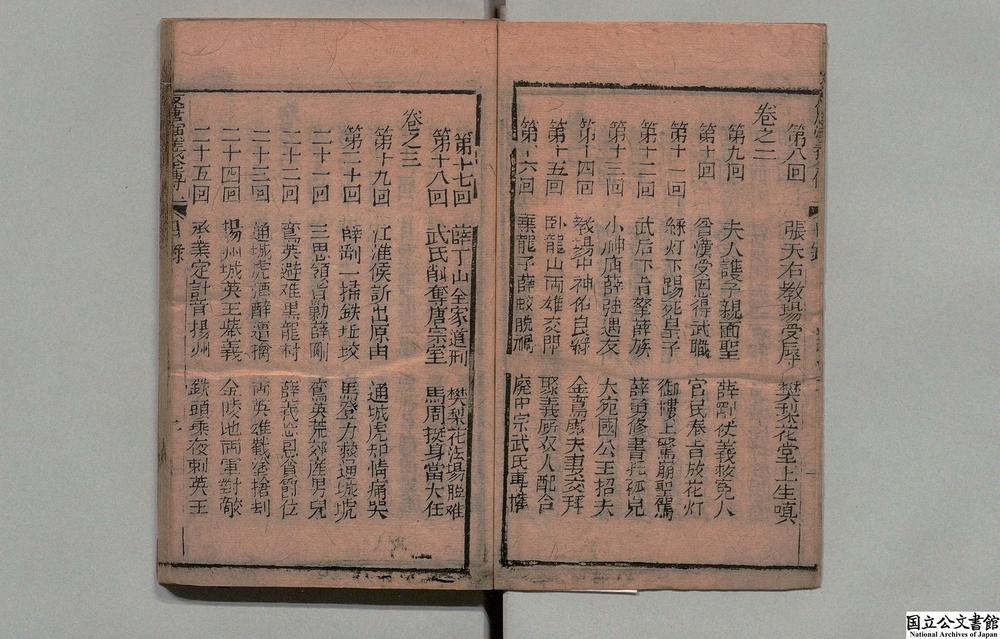 第八回 張天右教場受辱 樊梨花堂上生嗔
卷之二
第九回 夫人護子親面聖 薛剛仗義救冤人
第十回 曾漢受恩得武職 官民奉旨放花灯
第十一回 綵灯下踢死皇子 御樓上驚崩聖駕
第十二回 武后下旨拏薛族 薛勇修書托孤兒
第十三回 小神廟薛強遇友 大宛國公主招夫
第十四回 教場中神化良將 金鸞殿夫妻交拜
第十五回 卧龍山両雄交即 聚義廳双人配合
第十六回 龍子薛蛟脫禍 廢中宗武氏專權
第十七回 薛丁山全家遭刑 樊梨花法場脫难
第十八回 武氏削奪唐宗室 馬周挺身當大任
卷之三
第十九回 江淮侯訢出原由 通城虎知情痛哭
第二十回 薛剛一掃鉄坵坟 馬登力救通城虎
二十一回 三思領旨勦薛剛 鸞英荒郊産男兒
二十二回 鸞英避难黒龍村 薛義忘恩貪爵位
二十三回 通城虎酒醉遭擒 両英雄截塞搶刦
二十四回 揚州城英王起義 金陵地両軍對敵
二十五回 承業定計取揚州 鉄頭乘夜刺英王
目錄
国立公文書館
National Archives of Japan